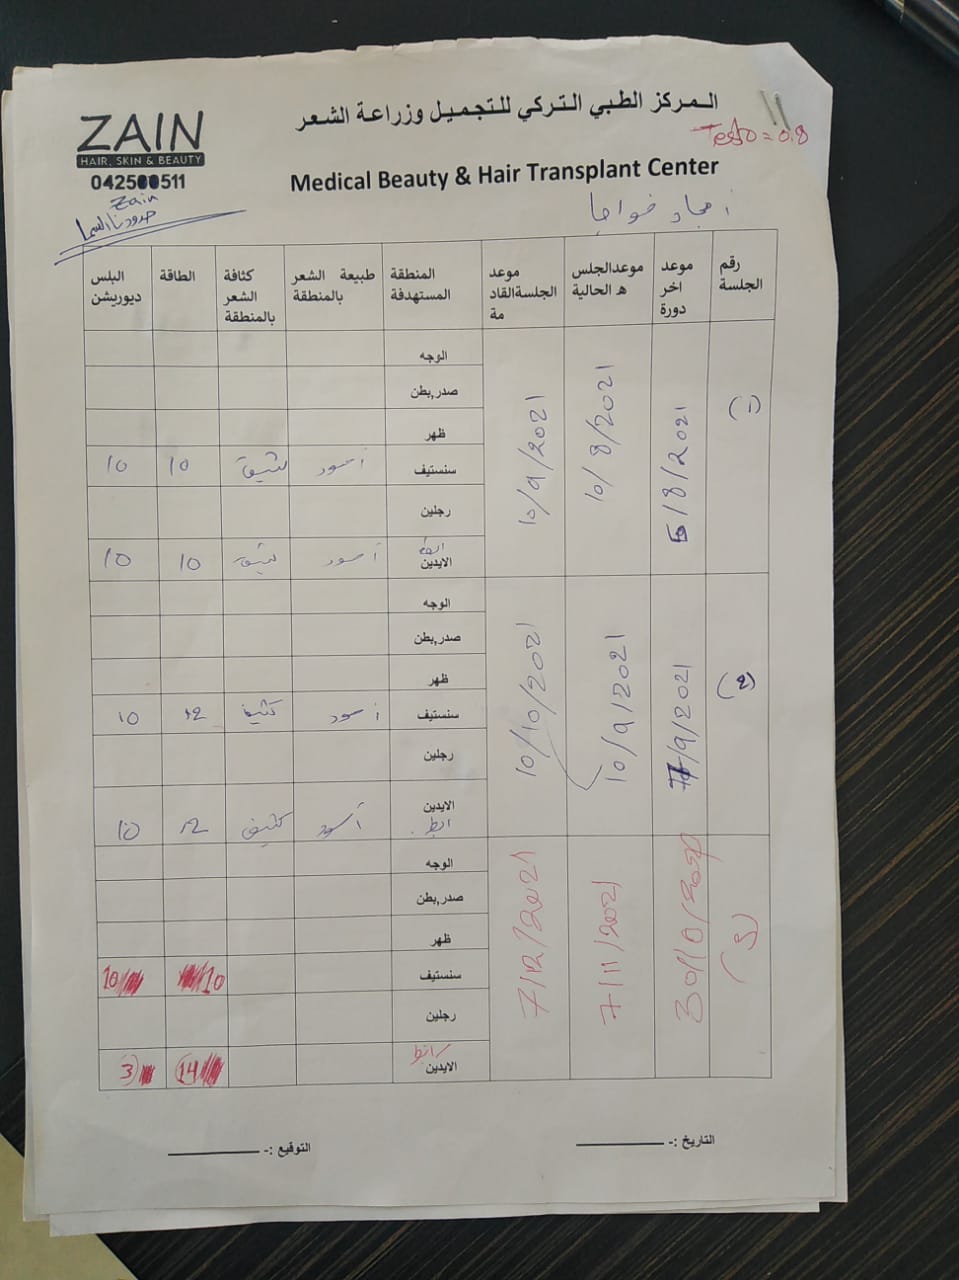 المركز الطبي التركي للتجميل وزراعة الشعر
Testo = 0.8
ZAIN
HAIR, SKIN & BEAUTY
042500511
Medical Beauty & Hair Transplant Center
Zain
حدودنا السما
أمجاد خواجا
رقم الجلسة
موعد اخر دورة
موعدالجلس ه الحالية
موعد الجلسةالقاد مة
المنطقة المستهدفة
طبيعة الشعر بالمنطقة
كثافة الشعر بالمنطقة
الطاقة
البلس ديوريشن
(1)
5/8/2021
10/8/2021
10/9/2021
الوجه
صدر,بطن
ظهر
سنستيف أسود كثيف 10 10
رجلين
ابط
الايدين أسود كثيف 10 10
(2)
7/9/2021
10/9/2021
10/10/2021
الوجه
صدر,بطن
ظهر
سنستيف أسود كثيف 12 10
رجلين
الايدين
ابط أسود كثيف 12 10
(3)
30/10/2021
7/11/2021
7/12/2021
الوجه
صدر,بطن
ظهر
سنستيف 10 10
رجلين
ابط
الايدين 14 3
التاريخ :- ـــــــــ
التوقيع :- ـــــــــ